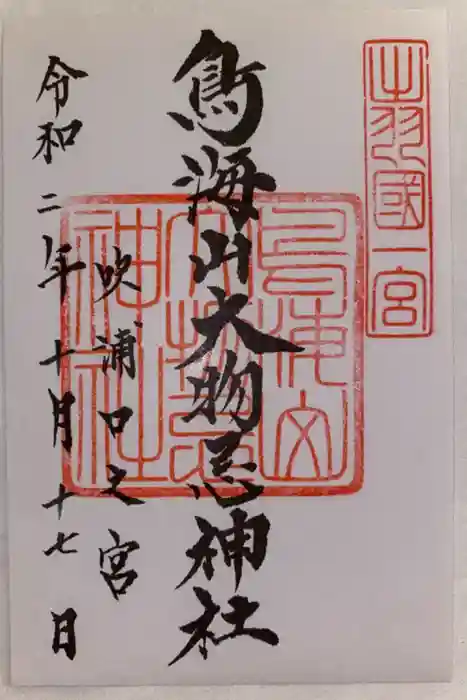 出羽國一宮
鳥海山大物忌神社
鳥海山大物忌神社
吹浦口之宮
令和二年十月十七日